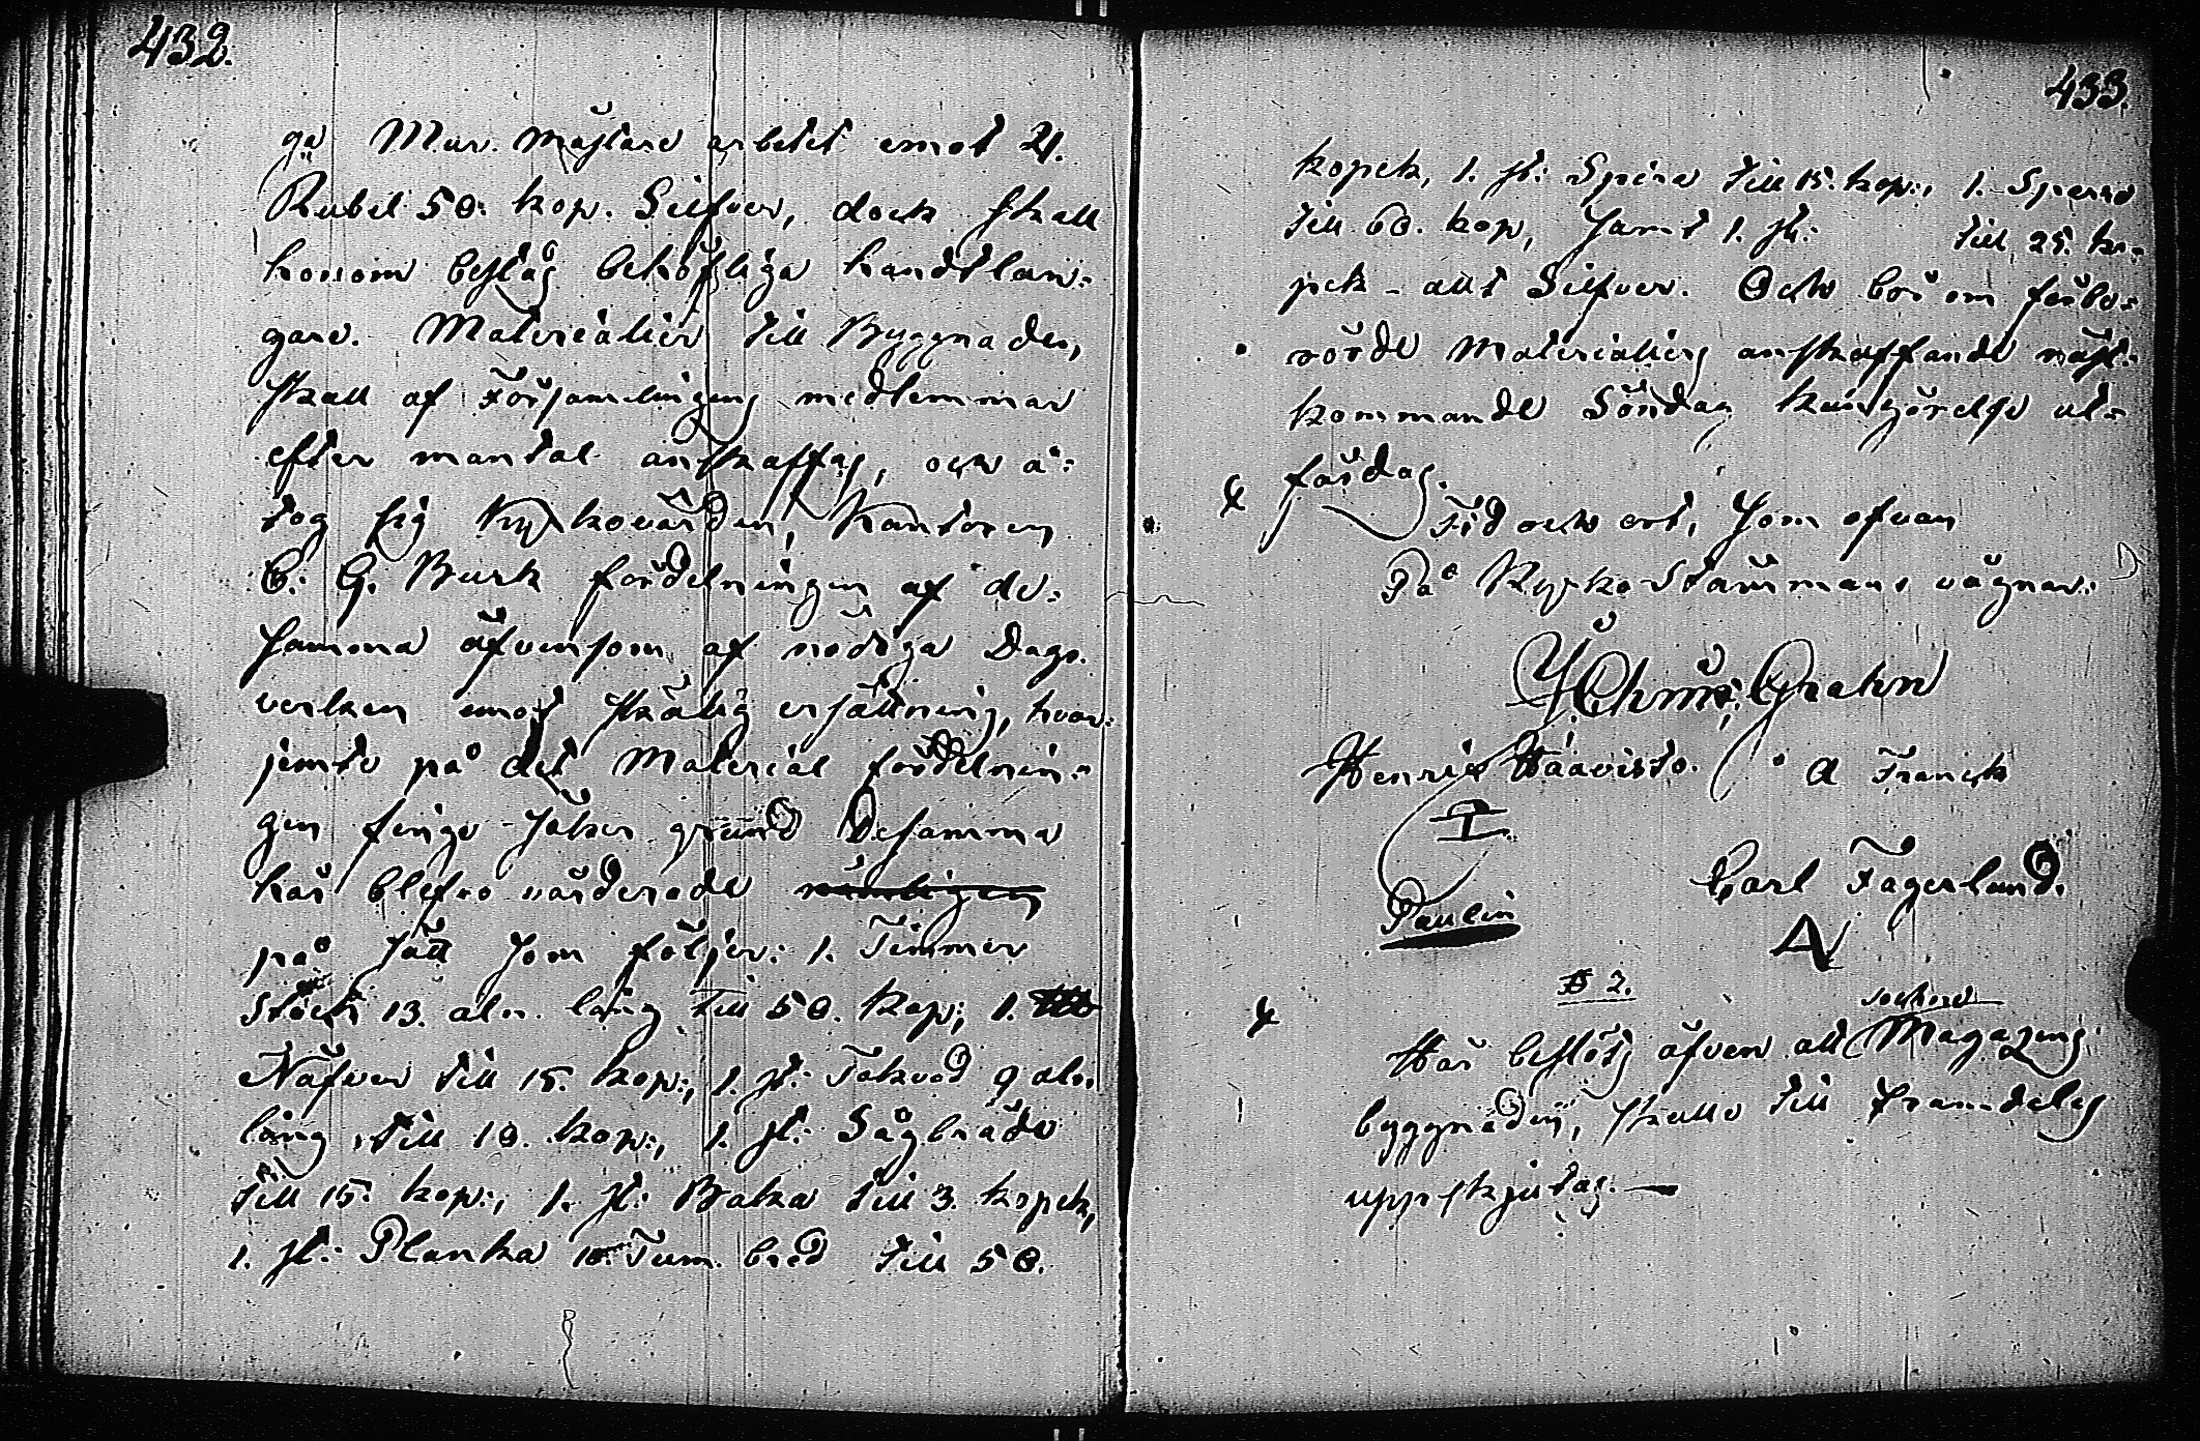 432.
ga Mur. mästare arbetet emot 21.
Rubel 50. kop. Silfver, dock skall
honom bestås behöfliga handtlan:
gare. Materialier till Byggnaden,
skall af Församlingens medlemmar
efter mantal anskaffas, och å:
tog sig Kyrkovärden, Kantoren
C. G. Burk fördelningen af de:
samma äfvensom af nödiga Dags.
verken emot skälig ersättning, hvar:
jemte på det Material fördelnin:
gen finge säker grund Desamma
här blefvo värderade nämligen
på sätt som följer: 1. Timmer
Stock 13. aln. lång till 50. kop:, 1.
Näfver till 15. kop:, 1. st: Takved 9 aln.
lång, till 10. kop:, 1. st: Sågbräde
till 15. kop:, 1. st: Baka till 3. kopek,
1. st: Planka 10. Tum. bred till 50.
433.
kopek, 1. st: Spira till 15. kop:, 1. Sparre
till 60. kop, samt 1. st: till 25. ko-
pek - allt Silfver. Och bör om förbe:
rörde Materialiers anskaffande näst:
kommande Söndag kungörelse ut:
färdas.
Tid och ort, som ofvan
På Kyrko Stämmans vägnar:
J. Chms: Grahn
Henric Haavisto. A Franck
Paulin
Carl Fagerlund.
§ 2.
sockene
Här beslöts äfven att Magazins
byggnaden, skulle till framdeles
uppskjutas. —